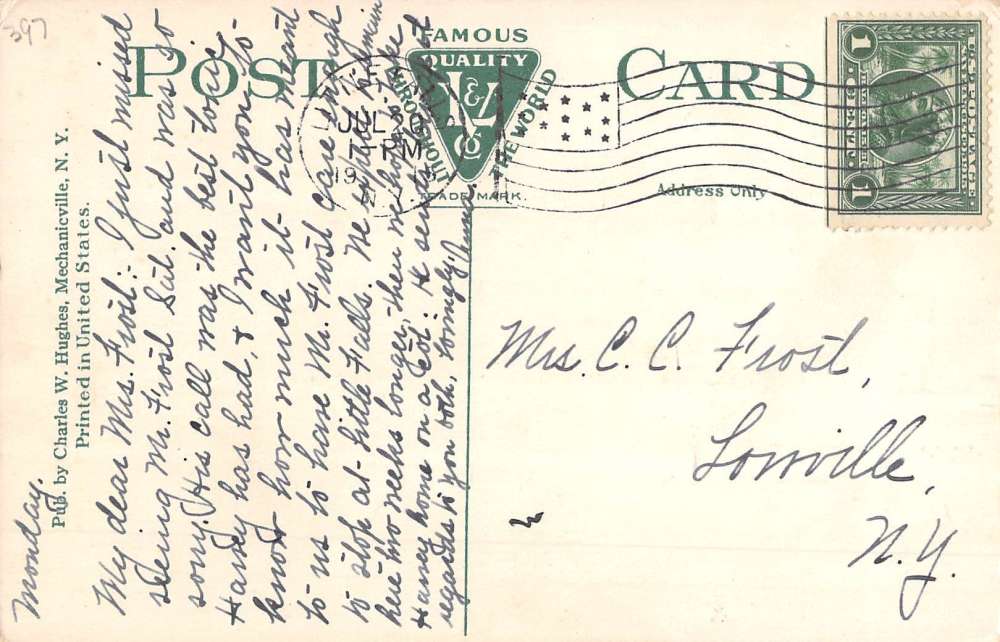 397
POST CARD
FAMOUS
QUALITY
THROUGHOUT
THE WORLD
TRADE MARK.
Address Only
Pub. by Charles W. Hughes, Mechanicville, N. Y.
Printed in United States.
JUL
7-PM
19
1 1
Monday.
My dear Mrs. Frost: I just missed
seeing Mr. Frost Sat. and was so
sorry. His call was the best tonic
Harvey has had, & I want you to
know how much it has meant
to us to have Mr. Frost care enough
to stop at Little Falls. We expect to
here two weeks longer, then we hope to take
Harvey home on a cot. He sends best
regards to you both, Lovingly,
Mrs. C. C. Frost,
Lowville,
N.Y.